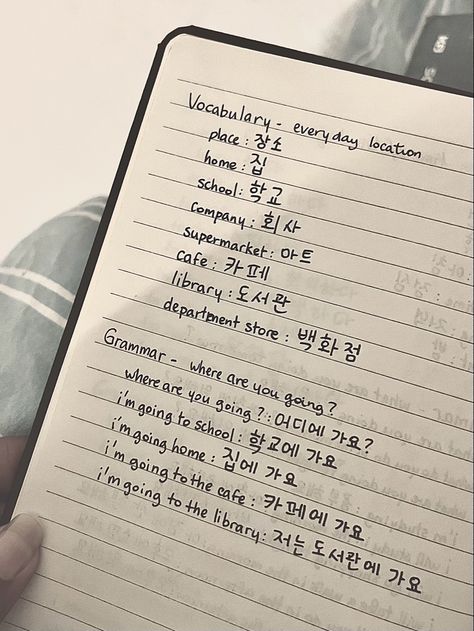 Vocabulary - everyday location
place : 장소
home : 집
school : 학교
company : 회사
supermarket : 마트
cafe : 카페
library : 도서관
department store : 백화점
Grammar - where are you going?
where are you going? : 어디에 가요?
i'm going to school : 학교에 가요
i'm going home : 집에 가요
i'm going to the cafe : 카페에 가요
i'm going to the library : 저는 도서관에 가요